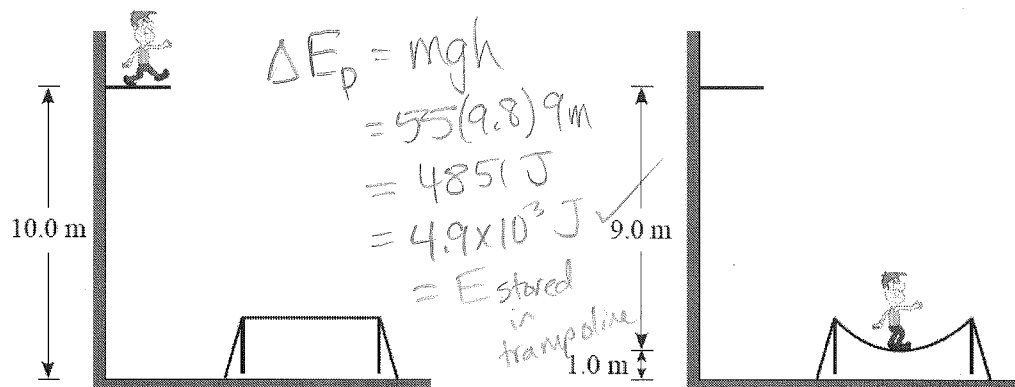 ΔEₚ = mgh
= 55(9.8) 9m
= 4851 J
= 4.9×10³ J ✓
= E stored
in
trampoline
10.0 m
9.0 m
1.0 m